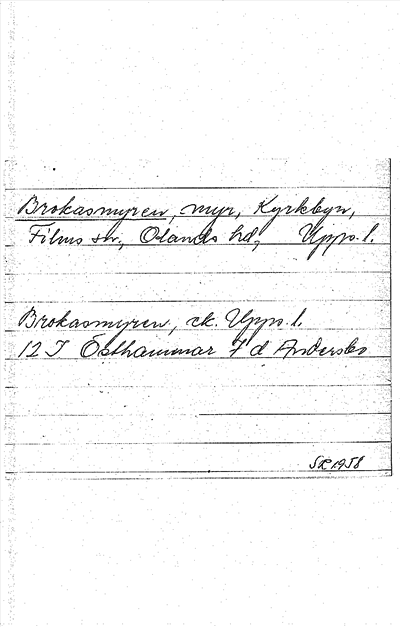 Brokasmyren, myr, Kyrkbyn,
Films sn, Olands hd, Upps. l.
Brokasmyren, ek. Upps. l.
12 I Östhammar 7 d Andersbo
SR 1958